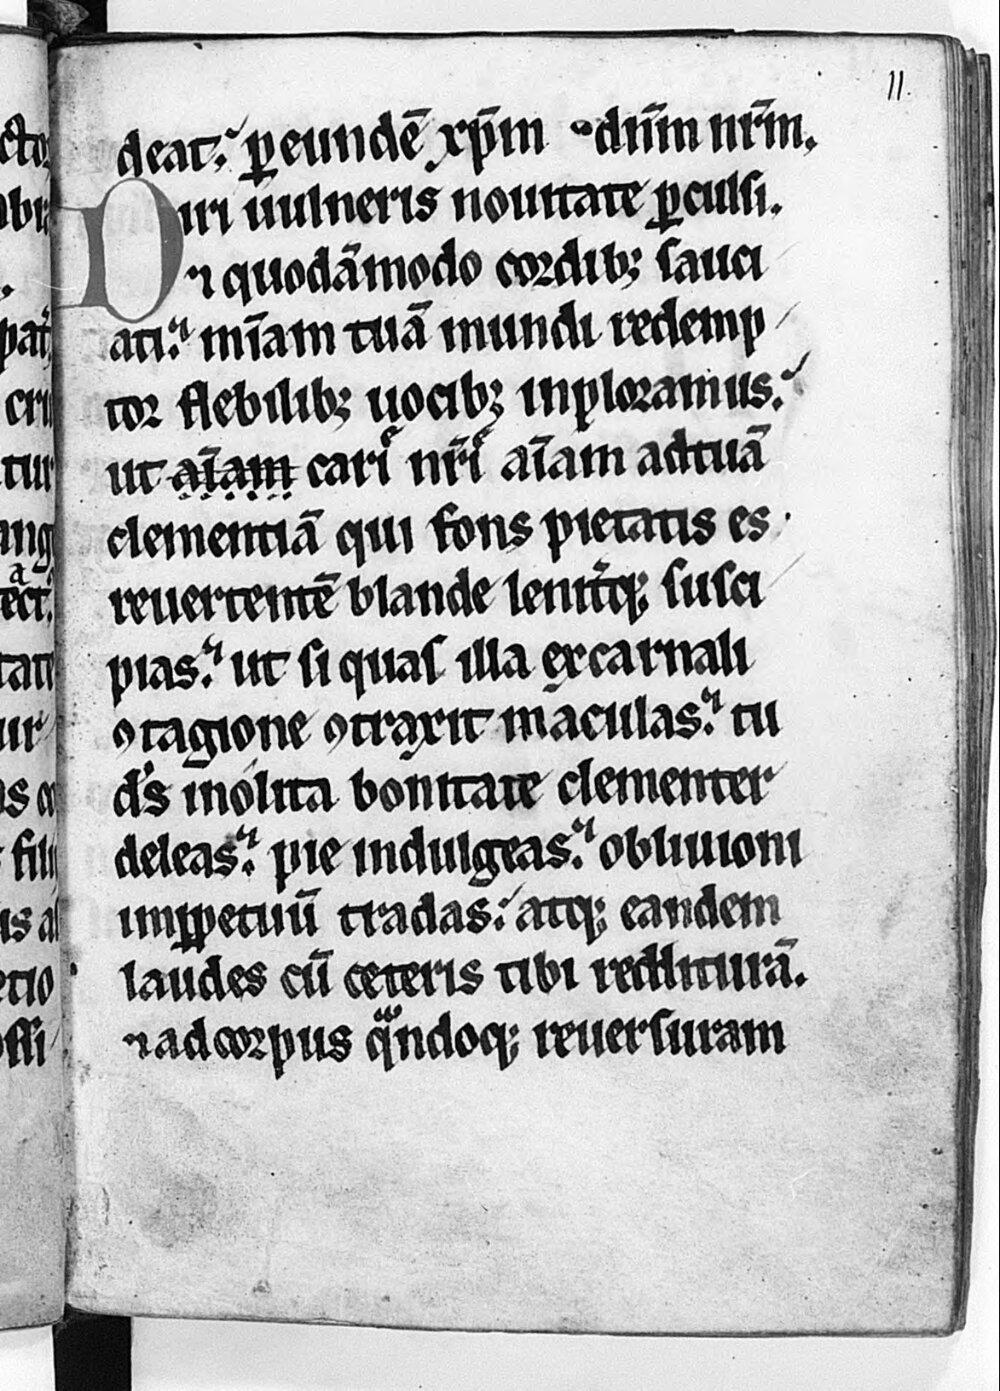 11.
deat. ꝑ eundē xp̄m dn̄m nr̄m.
Diri uulneris nouitate ꝑculsi.
⁊ quodāmodo cordibꝫ sauci
ati. mīam tuā mundi redemp
tor flebilibꝫ uocibꝫ inploramus.
ut aīam cari nr̄i aīam ad tuā
clementiā qui fons pietatis es
reuertentē blande lenitꝫ suſci
pias. ut si quaſ illa ex carnali
ꝯtagione ꝯtraxit maculas. tu
ds̄ inolita bonitate clementer
deleas. pie indulgeas. obliuioni
inꝑpetuū tradas. atqꝫ eandem
laudes cū ceteris tibi redditurā.
⁊ ad corpus qᵃndoqꝫ reuersuram